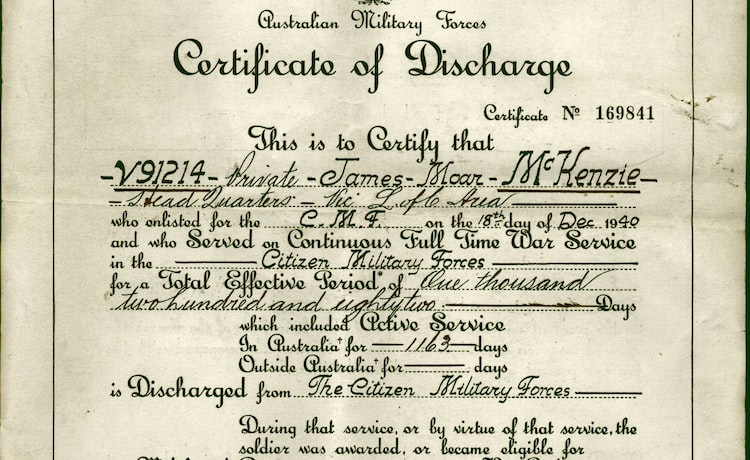 Australian Military Forces
Certificate of Discharge
Certificate No 169841
This is to Certify that
V91214 - Private - James - Moar - McKenzie
Head Quarters - Vic L of C Area
who enlisted for the C.M.F. on the 18th day of Dec 1940
and who Served on Continuous Full Time War Service
in the Citizen Military Forces
for a Total Effective Period of One thousand
two hundred and eighty two Days
which included Active Service
In Australia† for 1163 days
Outside Australia† for days
is Discharged from The Citizen Military Forces
During that service, or by virtue of that service, the
soldier was awarded, or became eligible for